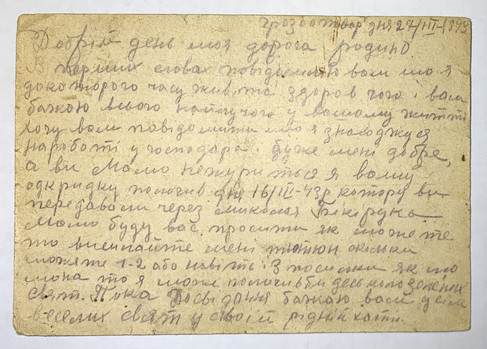 дня 27/III-1943
Добрий день моя дорога родино
В перших словах повідомляю вам що я
до которого часу живий та здоров чого і вам
бажаю всього найлучого у вашому життї
хочу вам повідомити що я знаходжуся
на роботі у господара і дуже мені добре,
а ви Мамо нежуриться я вашу
одкридку получив дня 16/III-43р котору ви
передавали через
Мамо буду вас просити як можете
то висилайте мені тютюн скільки
можете 1-2 або навіть і 3 посилки як що
мона то я може получив би десь
свят. Пока Досвіданя бажаю вам усім
веселих свят у своїй рідній хаті.